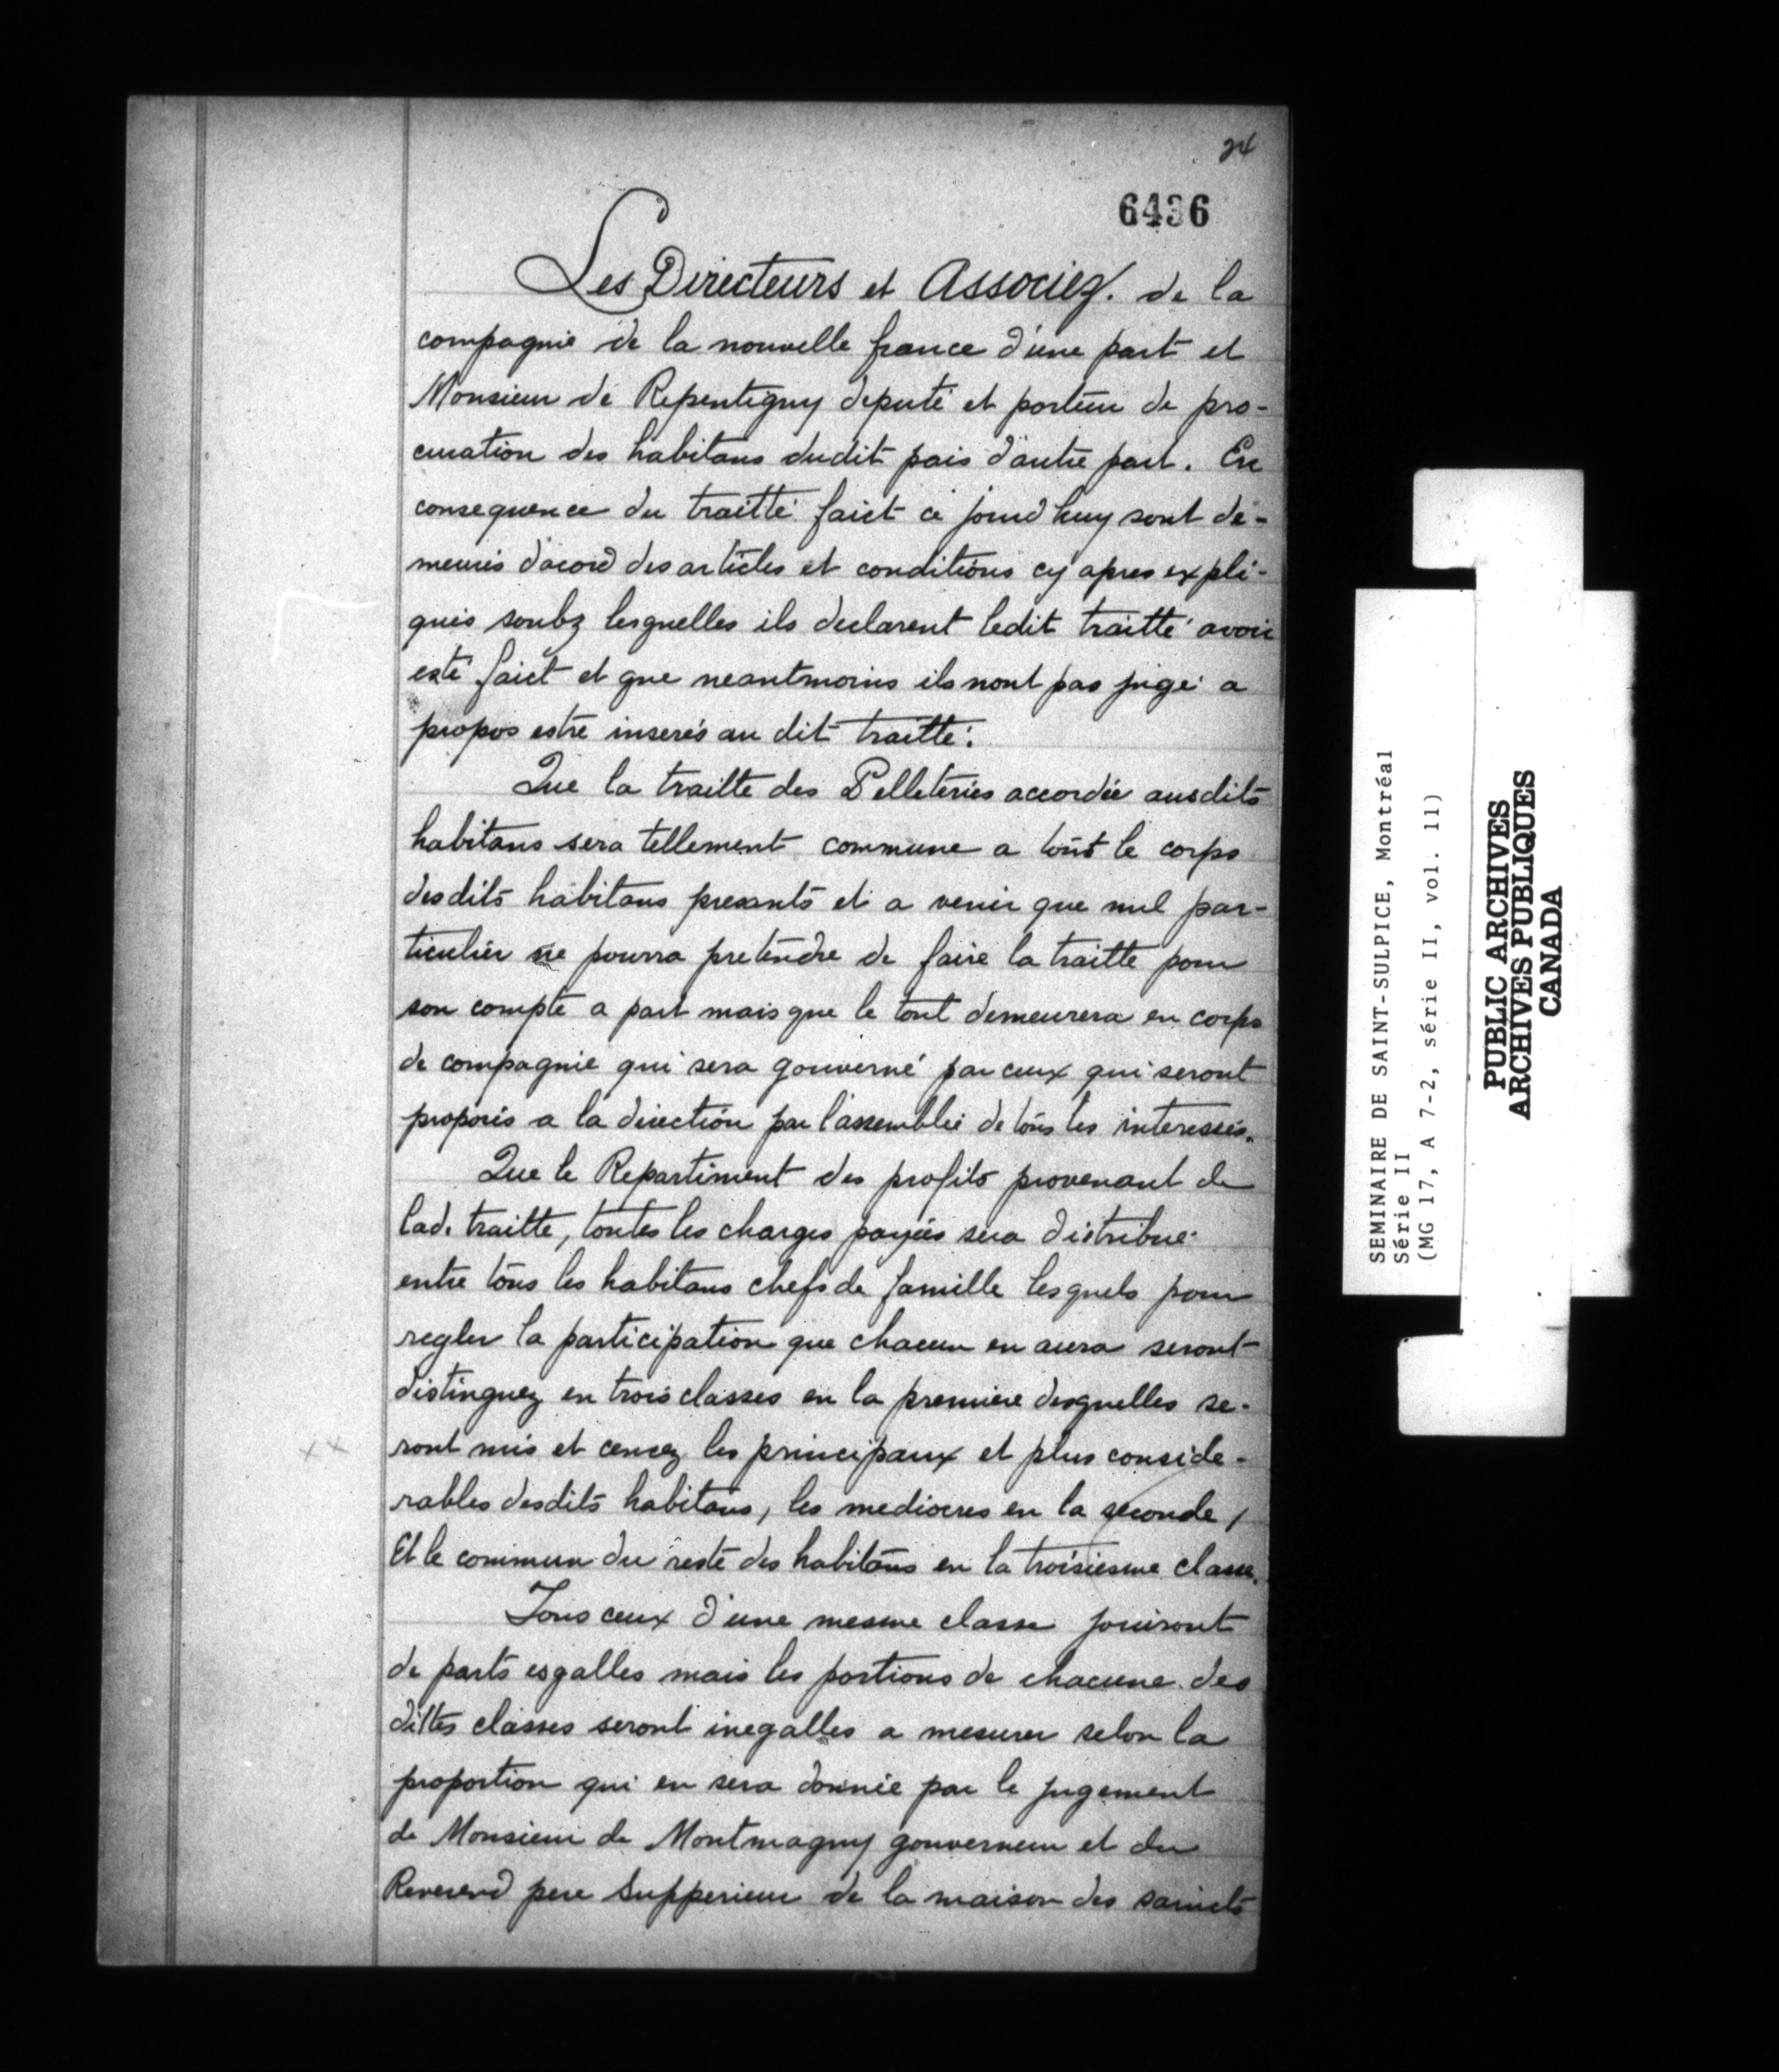 24
6436
Les Directeurs et Associez. de la
compagnie de la nouvelle france d'une part et
Monsieur de Repentigny deputé et porteur de pro-
curation des habitans dudit pais d'autre part. En
consequence du traitté faict ce jourd huy sont de-
meurés d'acord des articles et conditions cy apres expli-
qués soubz lesquelles ils declarent ledit traitté avoir
esté faict et que neantmoins ils nont pas jugé a
propos estre inserés au dit traitté.
Que la traitte des Pelleteries accordée ausdits
habitans sera tellement commune a tout le corps
desdits habitans presants et a venir que nul par-
ticulier ne pourra pretendre de faire la traitte pour
son compte a part mais que le tout demeurera en corps
de compagnie qui sera gouverné par ceux qui seront
proposés a la direction par l'assemblée de tous les interessés.
Que le Repartiment des profits provenant de
lad. traitte, toutes les charges payées sera distribué
entre tous les habitans chefs de famille lesquels pour
regler la participation que chacun en aura seront
distinguez en trois classes en la premiere desquelles se-
ront mis et censez les principaux et plus conside-
rables desdits habitans, les mediocres en la seconde,
Et le commun du reste des habitans en la troisiesme classe.
Tous ceux d'une mesme classe jouiront
de parts esgalles mais les portions de chacune des
dittes classes seront inegalles a mesurer selon la
proportion qui en sera donnée par le jugement
de Monsieur de Montmagny gouverneur et du
Reverend pere Supperieur de la maison des saincts
SEMINAIRE DE SAINT-SULPICE, Montréal
Série II
(MG 17, A 7-2, série II, vol. 11)
PUBLIC ARCHIVES
ARCHIVES PUBLIQUES
CANADA